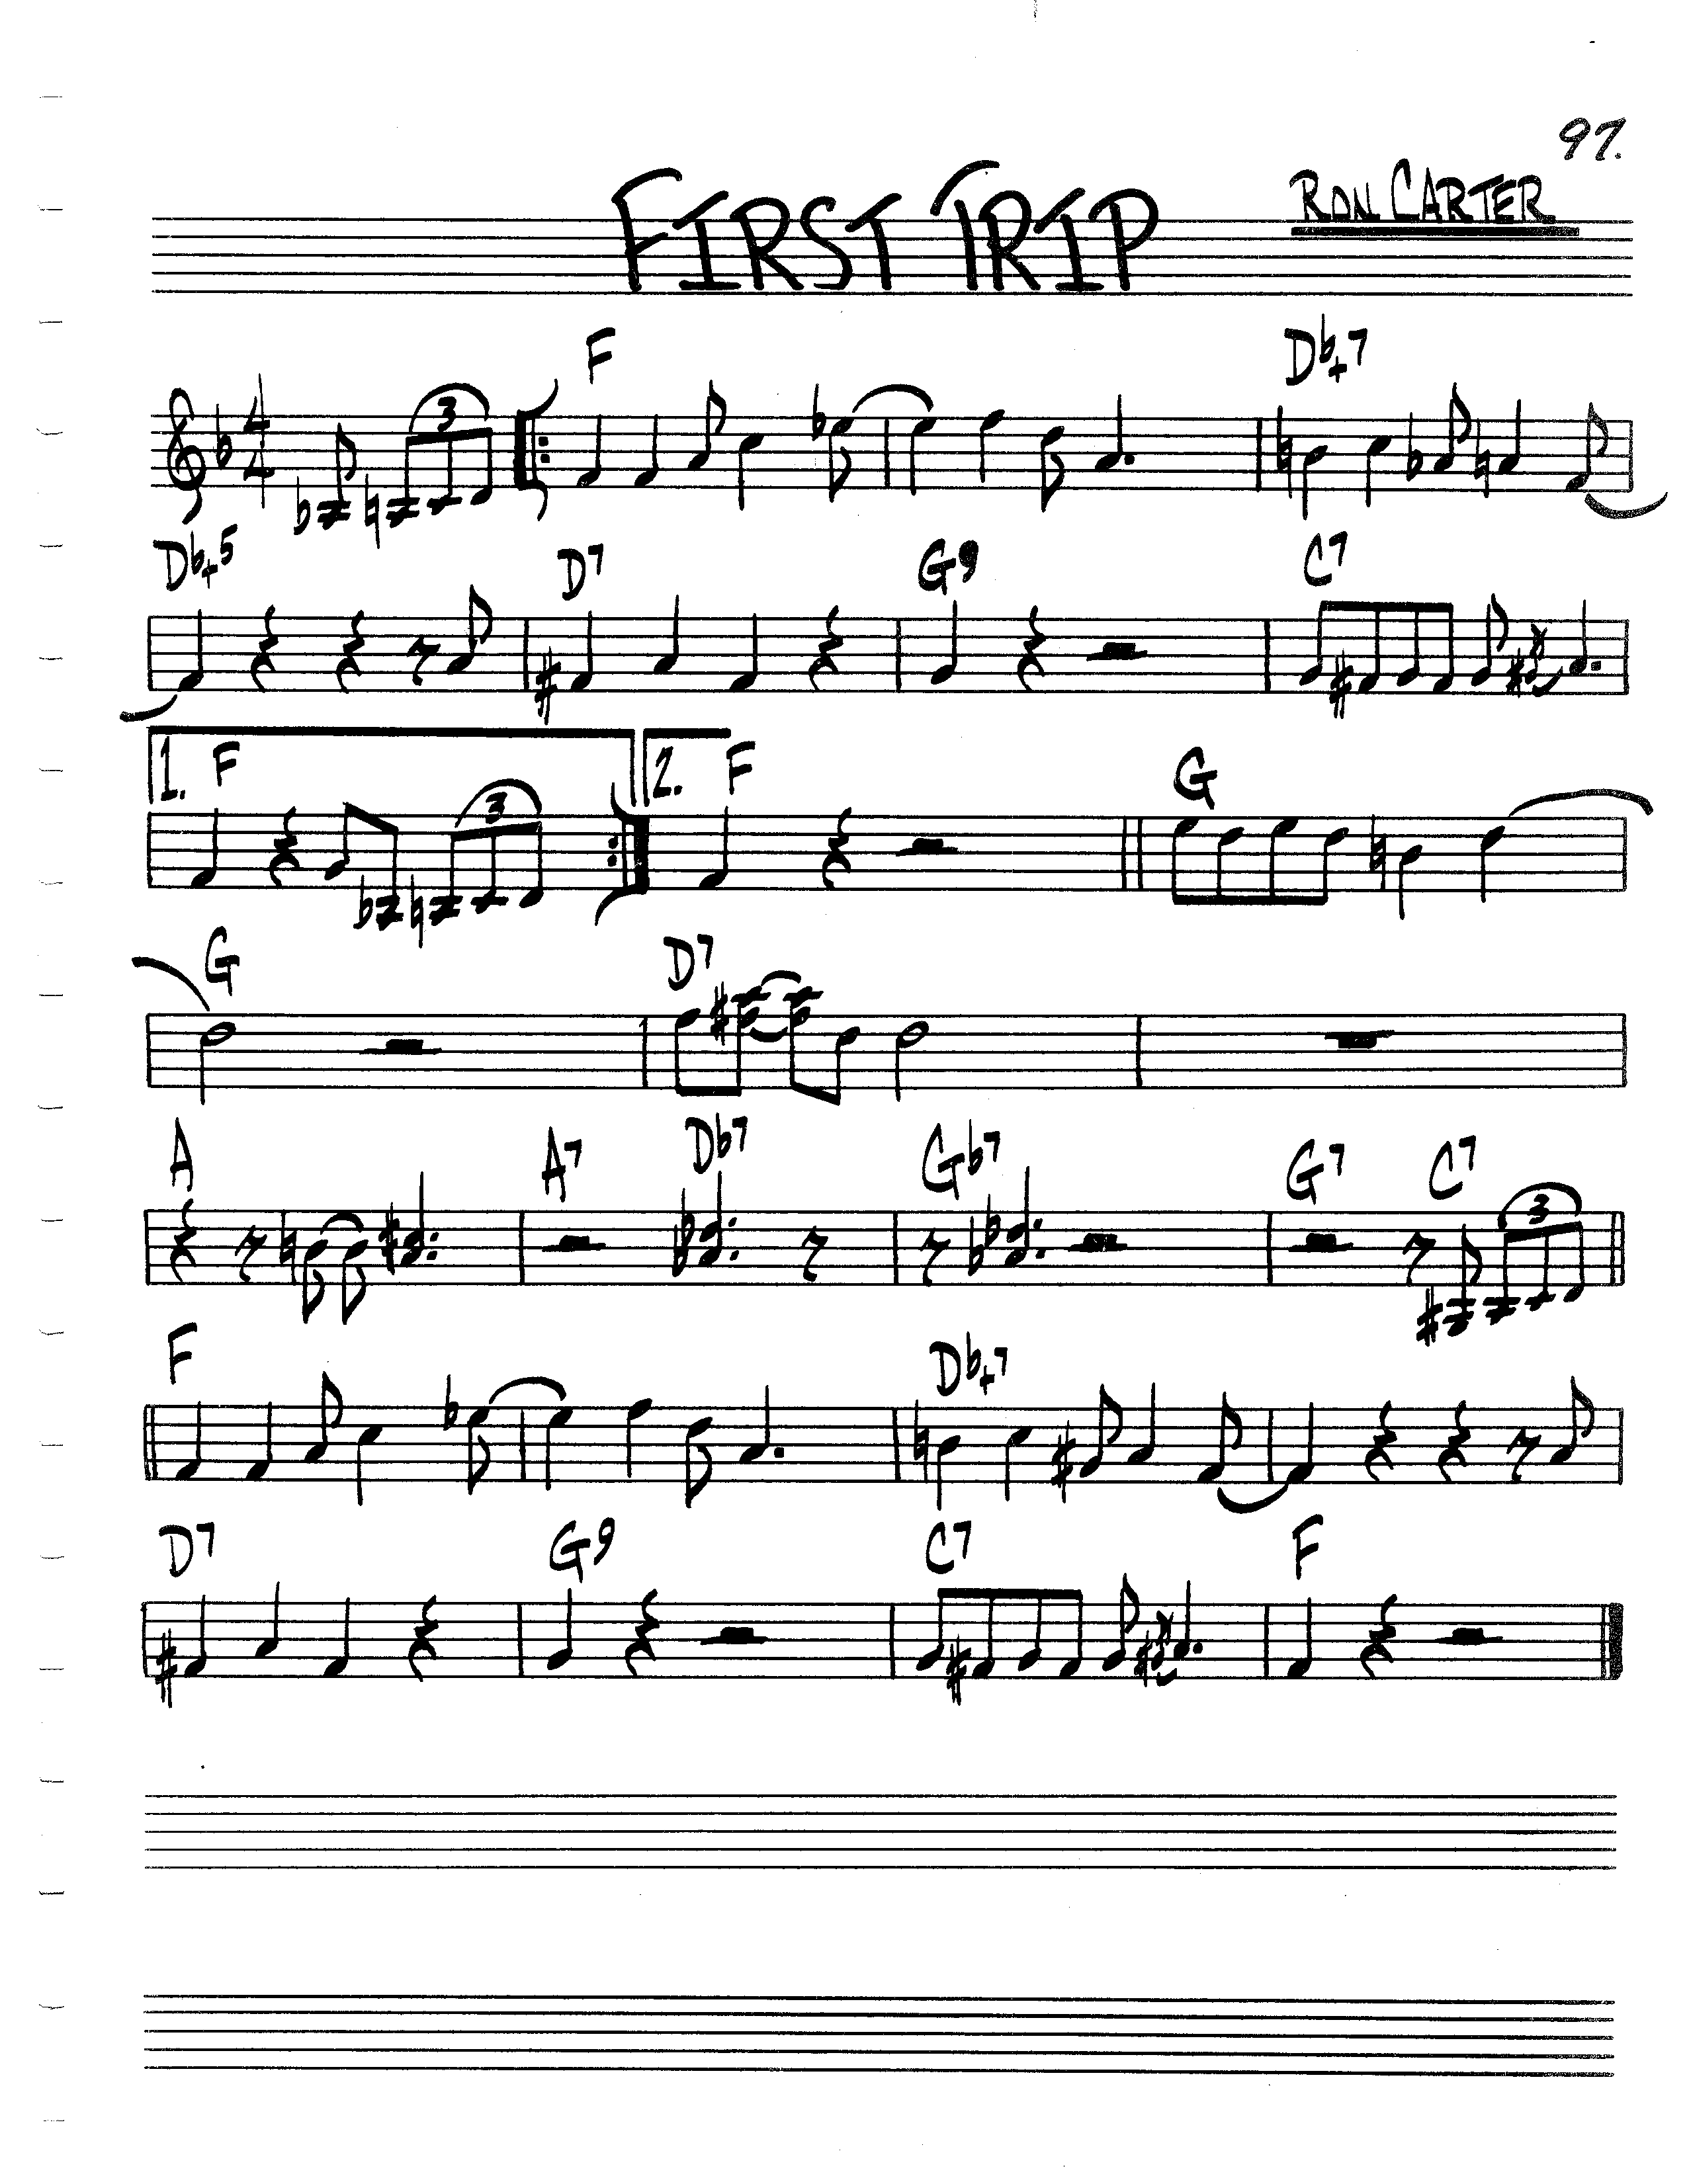 97.
FIRST TRIP RON CARTER
F D♭+7
4
4
3
D♭+5 D7 G9 C7
1. F 2. F G
3
G D7
A A7 D♭7 G♭7 G7 C7
3
F D♭+7
D7 G9 C7 F